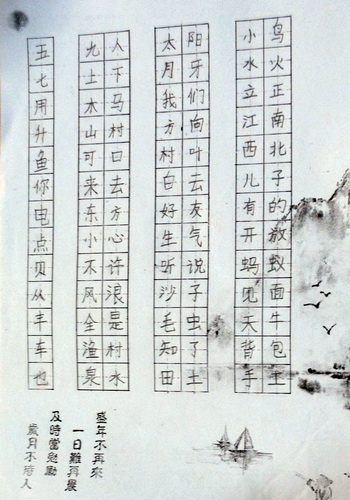 五七用升鱼你电点贝从丰车也
九土木山可来东小不风全渔泉
人下马村口去方心许浪是村水
太月我方村白好生听沙毛知田
阳牙们向叶云友气说子虫了土
小水立江西儿有开蚂见天背手
鸟火正南北子的放蚁面牛包土
盛年不再來
一日難再晨
及時當勉勵
歲月不待人